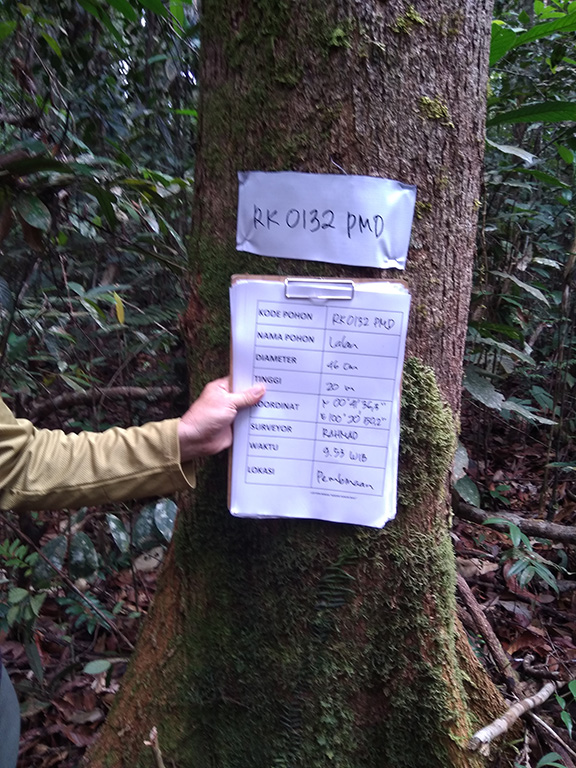 RK 0132 PMD
KODE POHON RK0132 PMD
NAMA POHON Lalan
DIAMETER 46 cm
TINGGI 20 m
KOORDINAT N 00° 41' 36,8"
E 100° 20' 50,2"
SURVEYOR RAHMAD
WAKTU 9.53 WIB
LOKASI Pembinaan